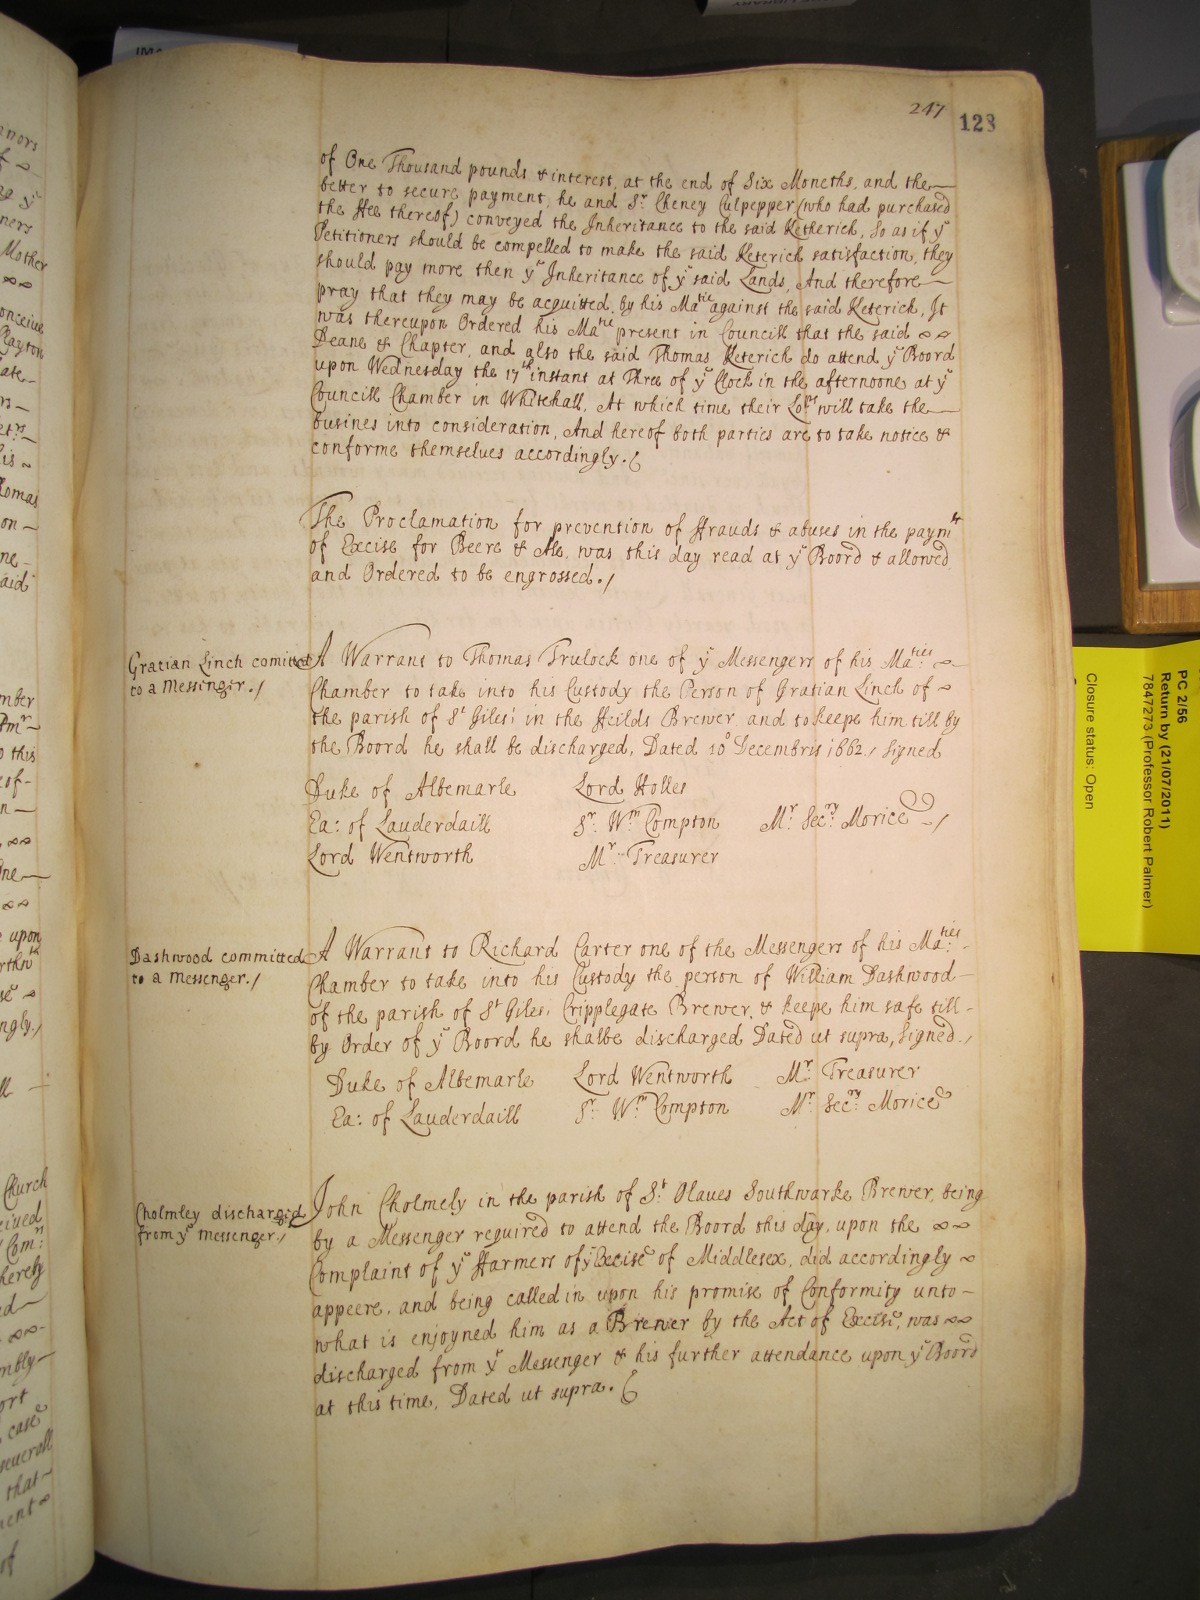 247
128
of One Thousand pounds & interest, at the end of Six Moneths, and the
better to secure payment, he and Sr. Cheney Culpepper (who had purchased
the ffee thereof) conveyed the Inheritance to the said Ketherick, So as if ye
Petitioners should be compelled to make the said Keterick satisfaction, they
should pay more then ye Inheritance of ye said Lands, And therefore
pray that they may be acquitted by his Matie against the said Keterick, It
was thereupon Ordered his Matie present in Councill that the said
Deane & Chapter, and also the said Thomas Keterick do attend ye Board
upon Wednesday the 17th instant at Three of ye Clock in the afternoone at ye
Councill Chamber in Whitehall, At which time their Lopps will take the
busines into consideration, And hereof both parties are to take notice &
conforme themselues accordingly.
The Proclamation for prevention of ffrauds & abuses in the paymt
of Excise for Beere & Ale, was this day read at ye Board & allowed
and Ordered to be engrossed./
Gratian Linch comitted
to a Messinger./
A Warrant to Thomas Trulock one of ye Messengers of his Maties
Chamber to take into his Custody the Person of Gratian Linch of
the parish of St Giles in the ffeilds Brewer, and to keepe him till by
the Board he shall be discharged, Dated 10o Decembris 1662./ Signed
Duke of Albemarle Lord Holles
Ea: of Lauderdaill Sr. Wm Compton Mr. Secry. Morice /
Lord Wentworth Mr. Treasurer
Dashwood committed
to a Messenger./
A Warrant to Richard Carter one of the Messengers of his Maties
Chamber to take into his Custody the person of William Dashwood
of the parish of St Giles, Cripplegate Brewer, & keepe him safe till
by Order of ye Board he shalbe discharged Dated ut supra, Signed./
Duke of Albemarle Lord Wentworth Mr. Treasurer
Ea: of Lauderdaill Sr. Wm Compton Mr. Secry. Morice
Cholmley discharged
from ye messenger./
John Cholmely in the parish of St. Olaues Southwarke Brewer, being
by a Messenger required to attend the Board this day, upon the
Complaint of ye ffarmers of ye Excise of Middlesex, did accordingly
appeere, and being called in upon his promise of Conformity unto
what is enjoyned him as a Brewer by the Act of Excise, was
discharged from ye Messenger & his further attendance upon ye Board
at this time, Dated ut supra.
PC 2/56
Return by (21/07/2011)
7847273 (Professor Robert Palmer)
Closure status: Open